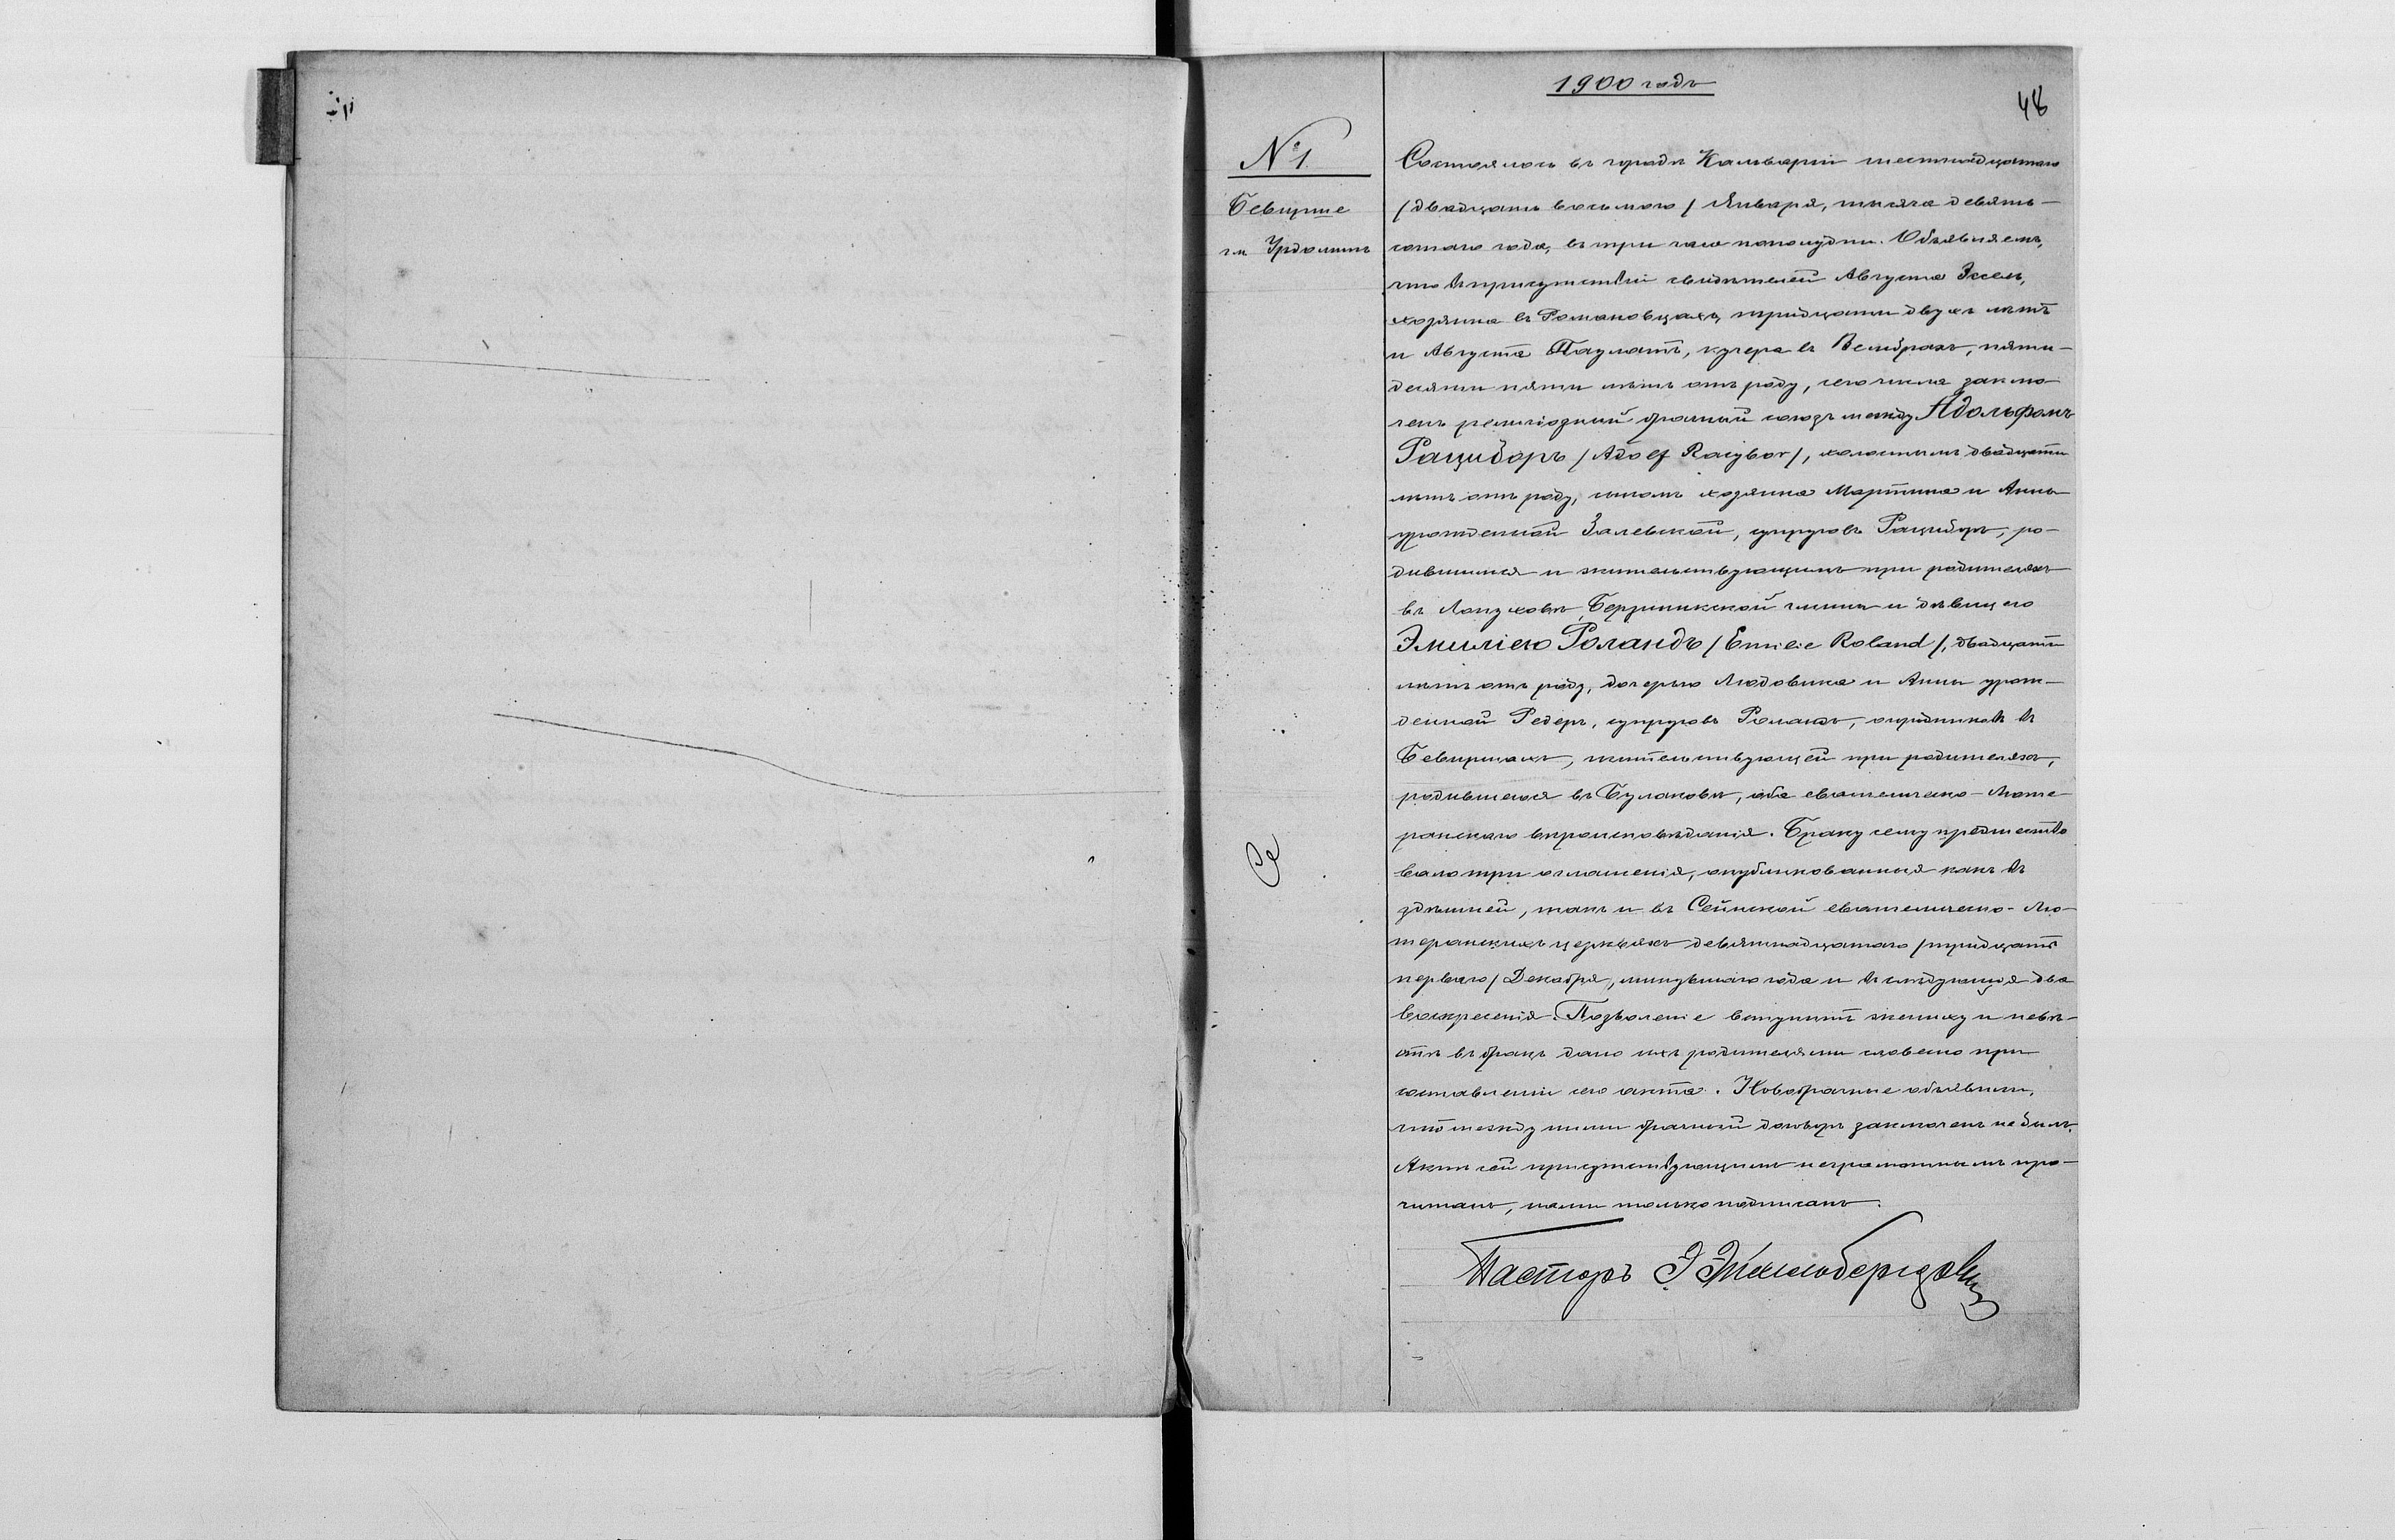 1900 годъ
48
№ 1.
Бевирше
гм. Урдоминъ
Состоялось въ городѣ Кальваріи шестнадцатаго
/двадцать восьмого/ Января, тысяча девять-
сотаго года, въ три часа пополудни. Объявляемъ,
что въ присутствіи свидѣтелей Августа
хозяина въ Романовцахъ, тридцати двухъ лѣтъ
и Августа Паулатъ, кучера въ пяти-
десяти пяти лѣтъ отъ роду, сего числа заклю-
ченъ религіозный брачный союзъ между Адольфомъ
Рациборъ /Adolf Racybor/, холостымъ двадцати
лѣтъ отъ роду, сыномъ хозяина Мартина и Анны
урожденной Залевской, супруговъ Рациборъ, ро-
дившимся и жительствующимъ при родителяхъ
въ Лопуховѣ, гмины и дѣвицею
Эмиліею Роландъ /Emilie Roland/, двадцати
лѣтъ отъ роду, дочерью Людовика и Анны урож-
денной Редеръ, супруговъ Роландъ, огродниковъ въ
Бевиршахъ, жительствующей при родителяхъ,
родившеюся въ Булаковѣ, оба евангелическо-люте-
ранскаго вѣроисповѣданія. Браку сему предшество-
вало три оглашенія, опубликованныя какъ въ
здѣшней, такъ и въ Сейнской евангелическо-лю-
теранскихъ церквахъ девятнадцатаго /тридцать
перваго/ Декабря, минувшаго года и въ слѣдующія два
воскресенія. Позволеніе вступить жениху и невѣ-
стѣ въ бракъ дано ихъ родителями словесно при
составленіи сего акта. Новобрачные объявили,
что между ними брачный договоръ заключенъ не былъ.
Актъ сей присутствующимъ неграмотнымъ про-
читанъ, нами только подписанъ.
Пасторъ